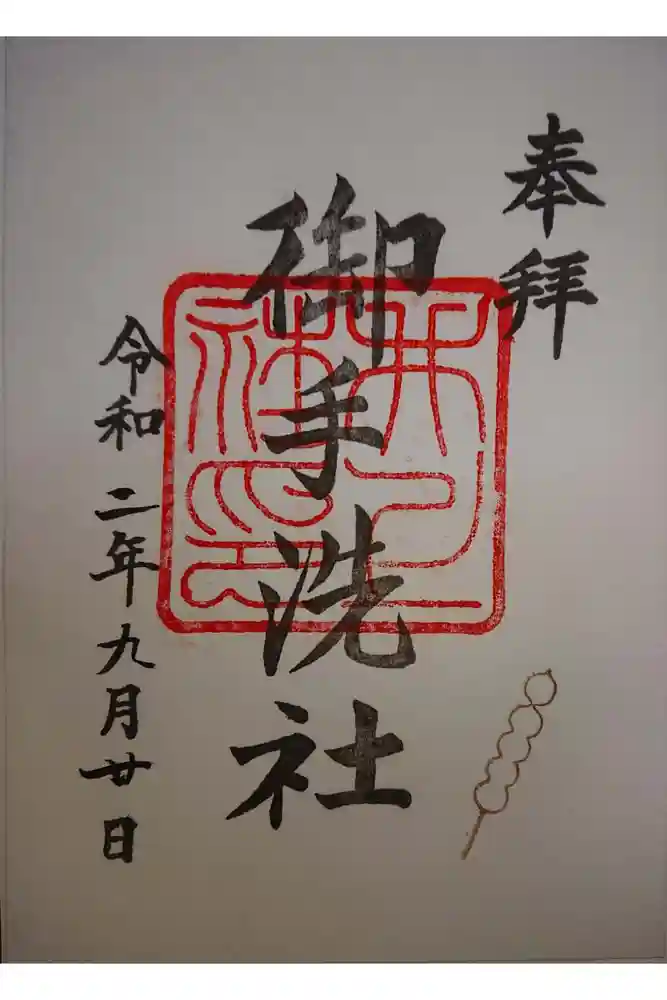 奉拝
御手洗社
令和二年九月廿日